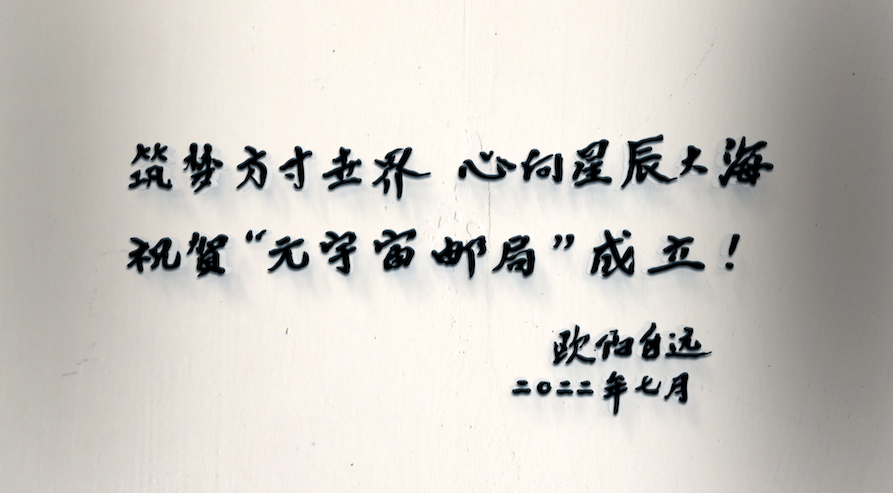 筑梦方寸世界 心向星辰大海
祝贺“元宇宙邮局”成立!
欧阳自远
二〇二二年七月